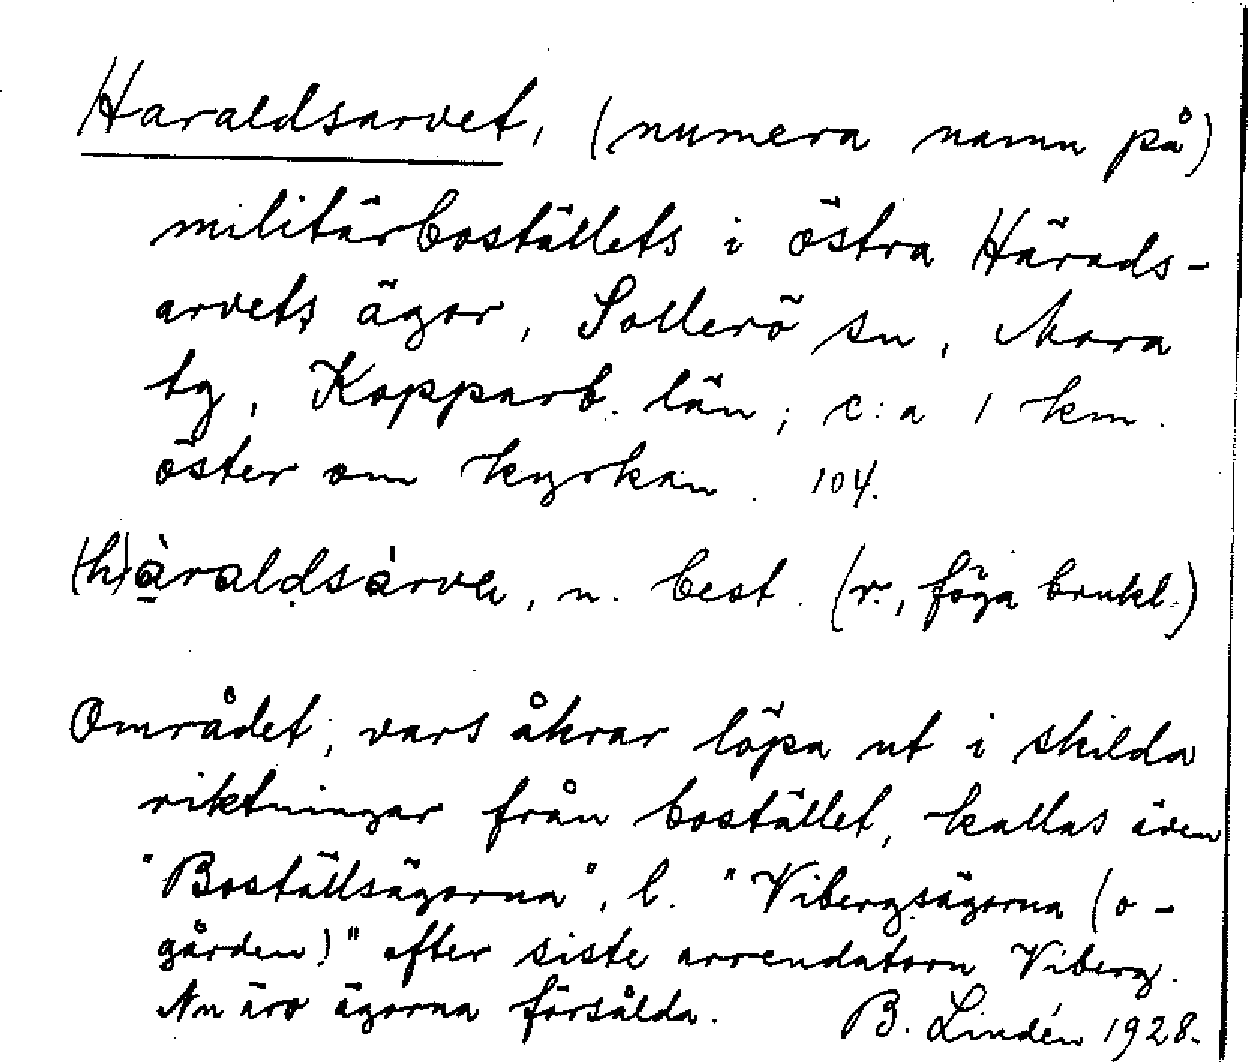 Haraldsarvet, (numera namn på)
militärboställets i östra Härads-
arvets ägor, Sollerö sn, Mora
tg, Kopparb. län; c:a 1 km.
öster om kyrkan. 104.
(h)àraldsàrve, n. best. (r., föga brukl.)
Området, vars åkrar löpa ut i skilda
riktningar från bostället, kallas även
"Boställsägorna", l. "Vibergsägorna (o-
gården)" efter siste arrendatorn Viberg.
Nu äro ägorna försålda. B. Lindén 1928.